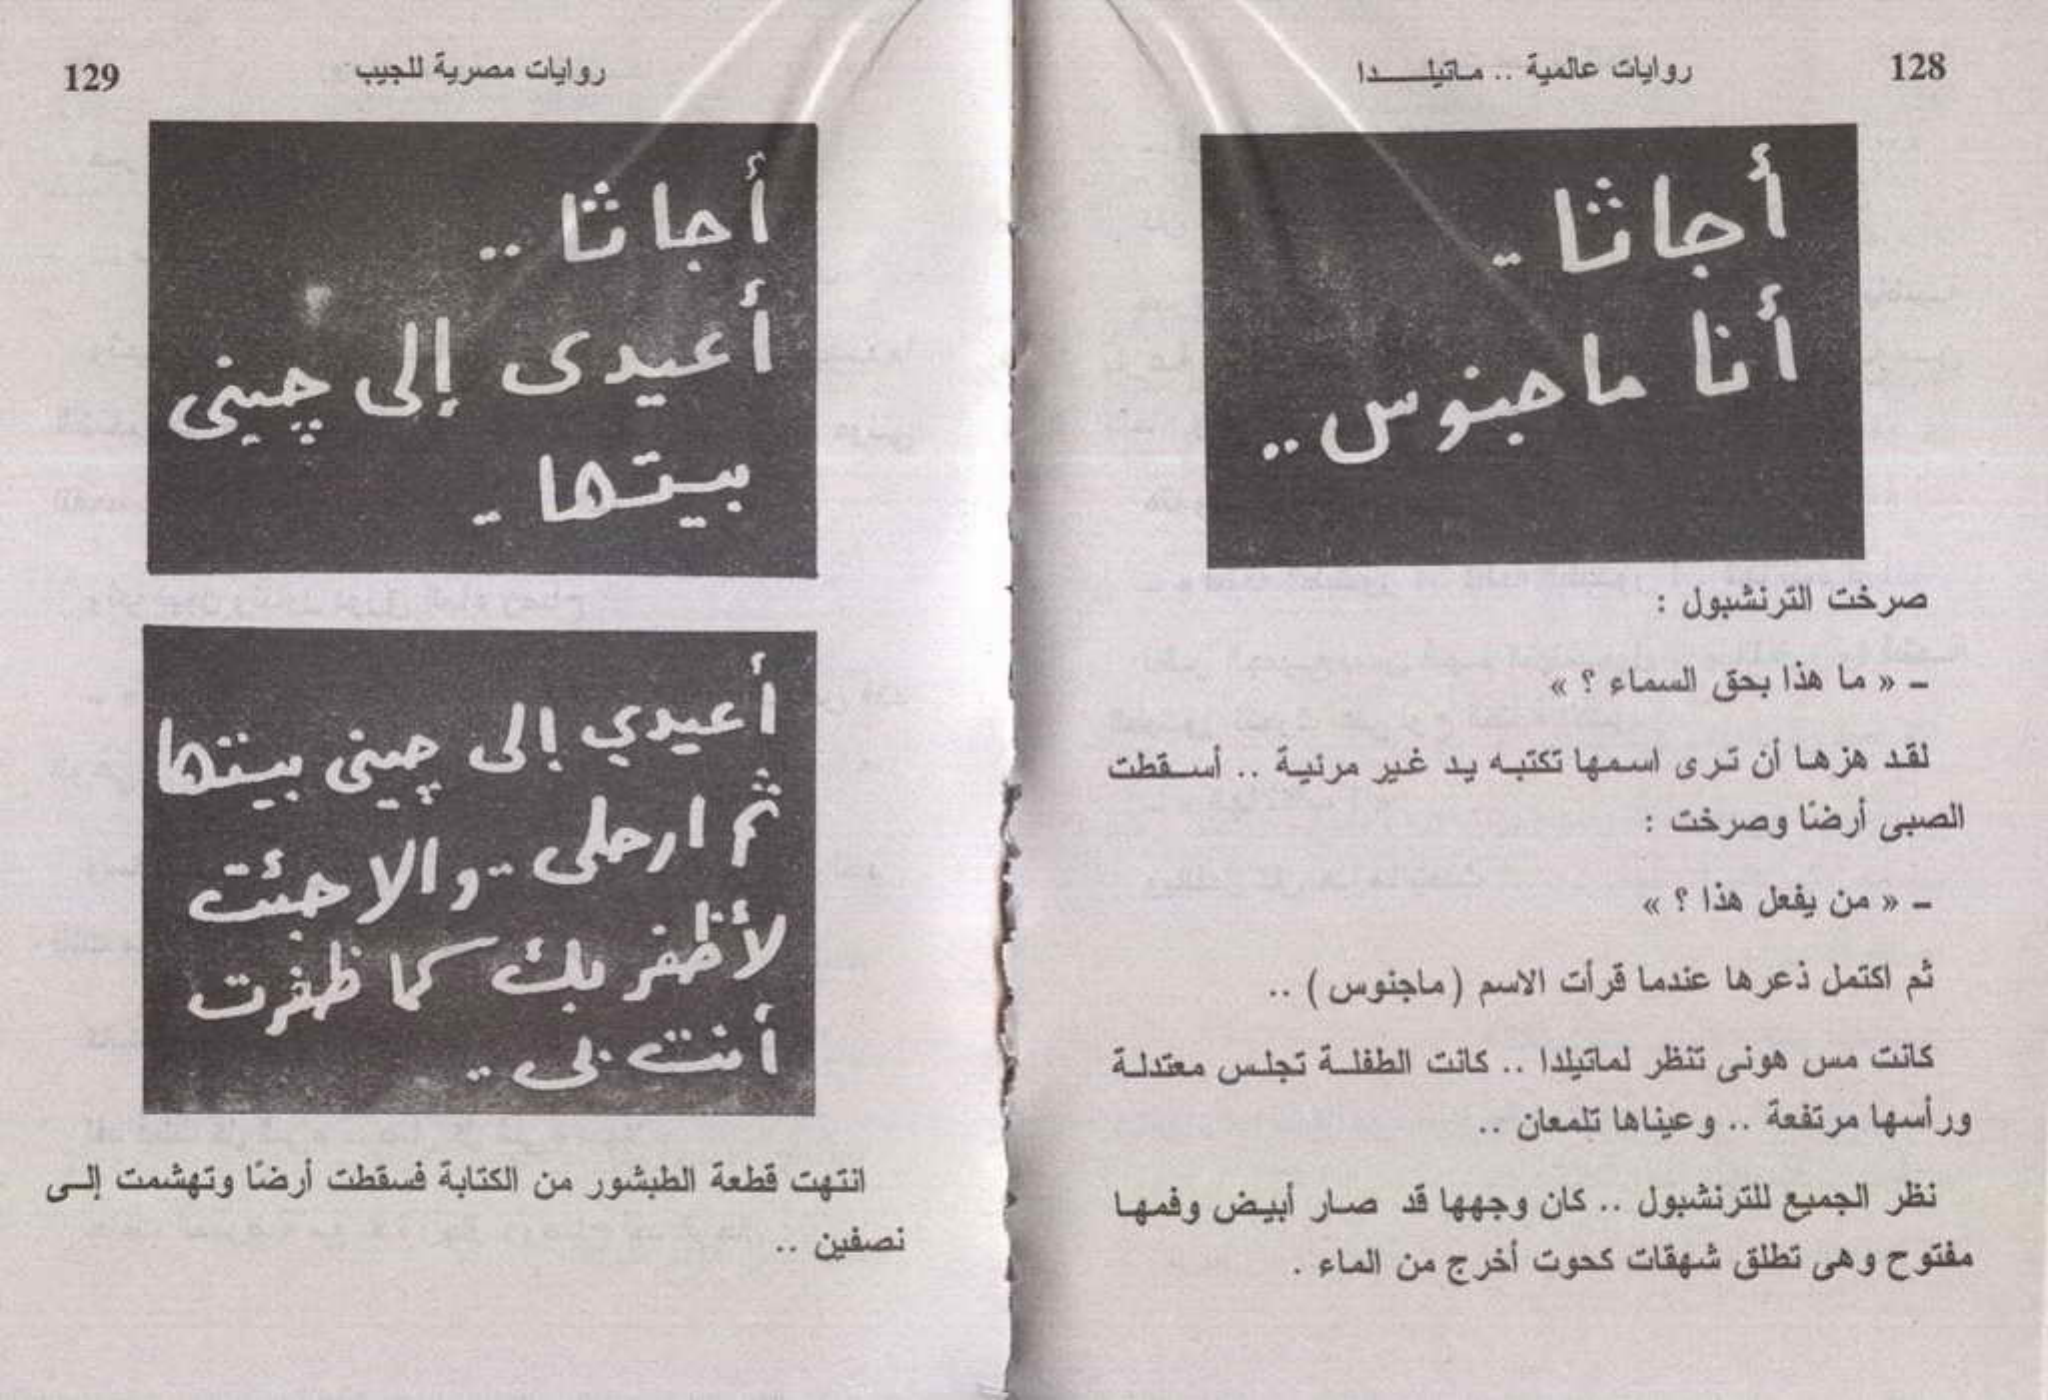 128
روايات عالمية .. ماتيلدا
أجاثا ..
أنا ماجنوس ..
صرخت الترنشبول :
ـ « ما هذا بحق السماء ؟ »
لقد هزها أن ترى اسمها تكتبه يد غير مرئية .. أسقطت
الصبى أرضًا وصرخت :
ـ « من يفعل هذا ؟ »
ثم اكتمل ذعرها عندما قرأت الاسم ( ماجنوس ) ..
كانت مس هونى تنظر لماتيلدا .. كانت الطفلة تجلس معتدلة
ورأسها مرتفعة .. وعيناها تلمعان ..
نظر الجميع للترنشبول .. كان وجهها قد صار أبيض وفمها
مفتوح وهى تطلق شهقات كحوت أخرج من الماء .
روايات مصرية للجيب
129
أجاثا ..
أعيدى إلى چينى
بيتها ..
أعيدي إلى چينى بيتها
ثم ارحلى .. والا جئت
لأظفر بك كما ظفرت
أنت بى ..
انتهت قطعة الطبشور من الكتابة فسقطت أرضًا وتهشمت إلى
نصفين ..